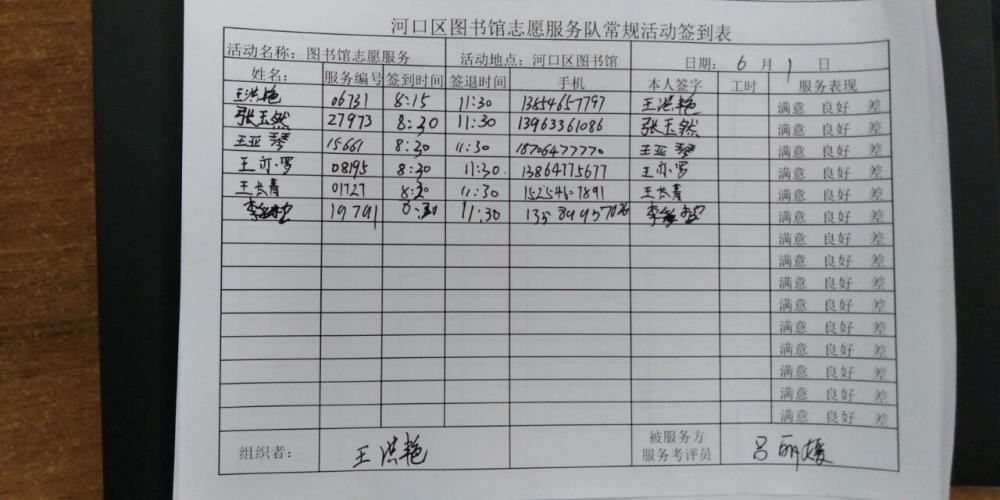 河口区图书馆志愿服务队常规活动签到表
活动名称：图书馆志愿服务 活动地点：河口区图书馆 日期：6月1日
姓名： 服务编号 签到时间 签退时间 手机 本人签字 工时 服务表现
王洪艳 06731 8:15 11:30 13854657797 王洪艳 满意 良好 差
张玉然 27973 8:30 11:30 13963361086 张玉然 满意 良好 差
王亚琴 15661 8:30 11:30 18706477770 王亚琴 满意 良好 差
王亦罗 08195 8:30 11:30 13864775677 王亦罗 满意 良好 差
王长青 01727 8:30 11:30 15254607891 王长青 满意 良好 差
李 19791 8:30 11:30 李 满意 良好 差
满意 良好 差
满意 良好 差
满意 良好 差
满意 良好 差
满意 良好 差
满意 良好 差
满意 良好 差
满意 良好 差
满意 良好 差
组织者： 王洪艳 被服务方 吕丽媛
服务考评员